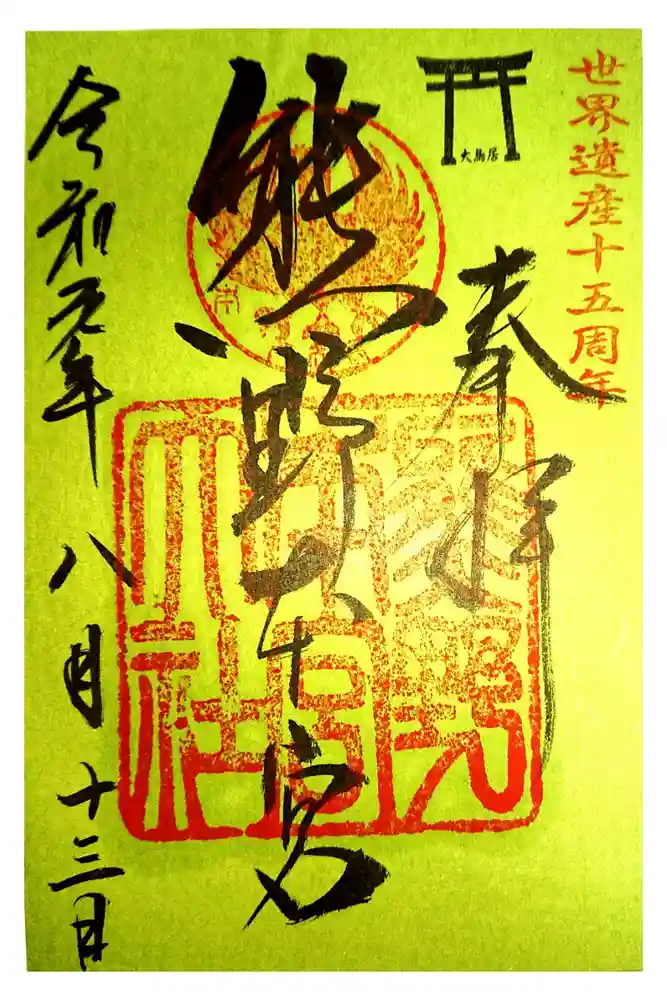 世界遺産十五周年
大鳥居
奉拝
熊野本宮
熊野
本宮
大社
令和元年八月十三日